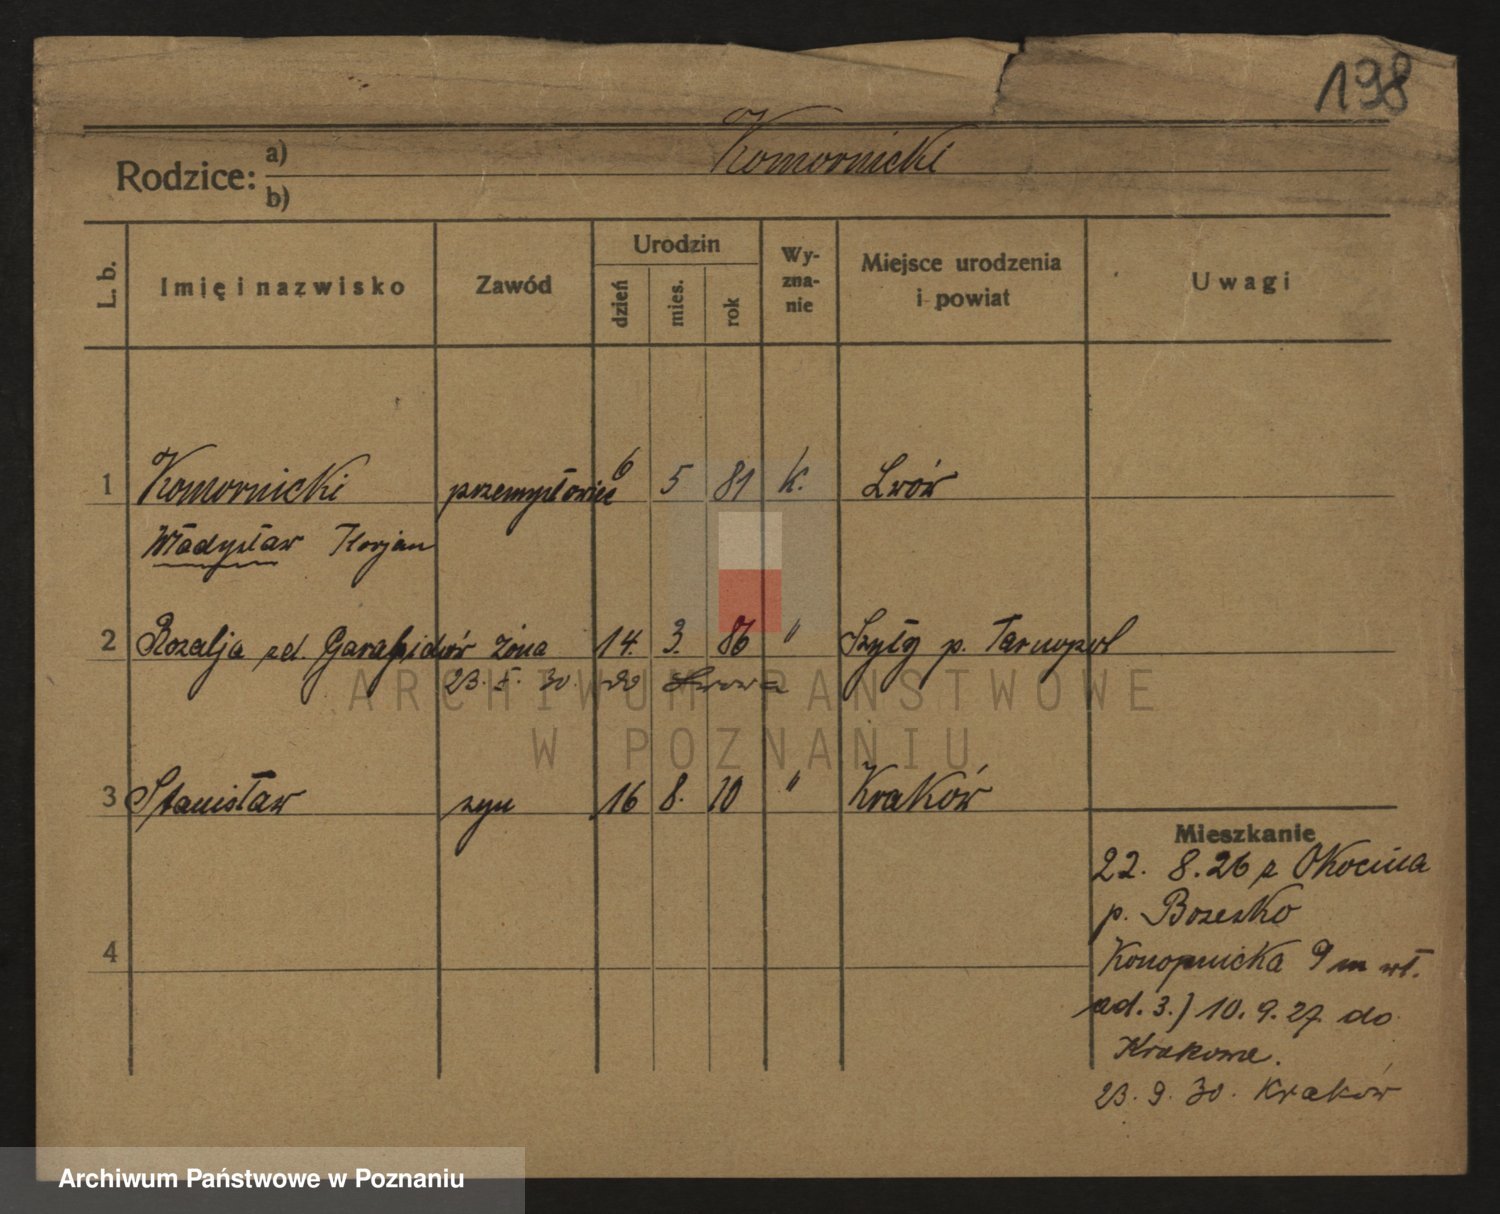 198
Komornicki
Rodzice: a)
b)
L. b. Imię i nazwisko Zawód Urodzin dzień mies. rok Wy-zna-nie Miejsce urodzenia i powiat Uwagi
1 Komornicki przemysłowiec 6 5 81 k. Lwów
Władysław Florjan
2 Rozalja zd. żona 14. 3. 86 " p. Tarnopol
23. 5. 30. do Lwowa
ARCHIWUM PAŃSTWOWE
W POZNANIU
3 Stanisław syn 16 8. 10 " Kraków
Mieszkanie
22. 8. 26 z Okocima
p. Brzesko
4
Konopnicka 9 m wł.
ad. 3.) 10. 9. 27 do
Krakowa.
23. 9. 30. Kraków
Archiwum Państwowe w Poznaniu